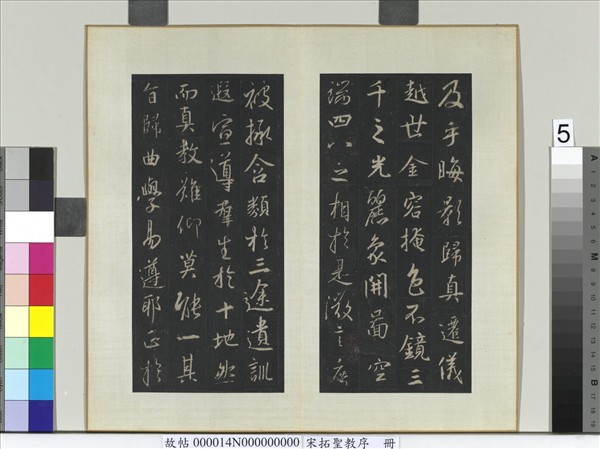 及乎晦影歸真遷儀
越世金容掩色不鏡三
千之光麗象開圖空
端四八之相於是微言廣
被拯含類於三途遺訓
遐宣導群生於十地然
而真教難仰莫能一其
旨歸曲學易遵耶正於
5
A
1
2
3
4
5
6
M
8
9
10
11
12
13
14
15
B
17
18
19
故帖 000014N000000000 宋拓聖教序 冊